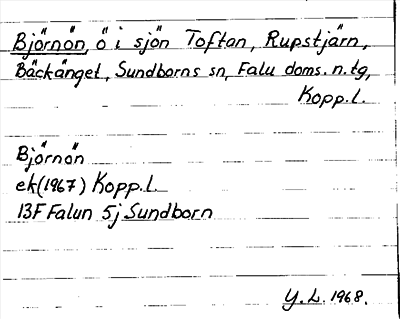 Björnön, ö i sjön Toftan, Rupstjärn,
Bäckänget, Sundborns sn, Falu doms. n. tg,
Kopp. l.
Björnön
ek (1967) Kopp. l.
13F Falun 5j Sundborn
Y. L. 1968.